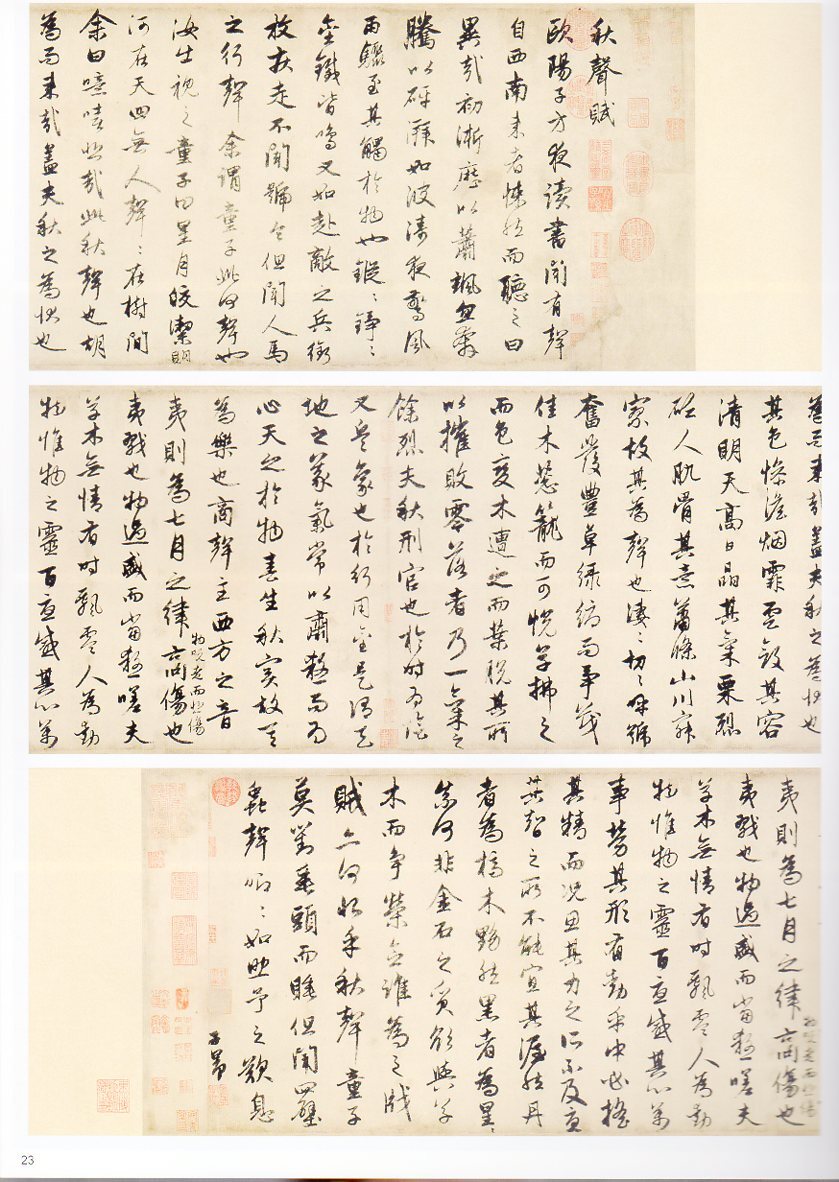 秋聲賦
歐陽子方夜讀書聞有聲
自西南來者悚然而聽之曰
異哉初淅瀝以蕭颯忽奔
騰以砰湃如波濤夜驚風
雨驟至其觸於物也鏦〻錚〻
金鐵皆鳴又如赴敵之兵銜
枚疾走不聞號令但聞人馬
之行聲余謂童子此何聲也
汝出視之童子曰星月皎潔明
河在天四無人聲〻在樹間
余曰噫嘻悲哉此秋聲也胡
為而來哉蓋夫秋之為狀也
為而來哉蓋夫秋之為狀也
其色慘澹烟霏雲斂其容
清明天高日晶其氣栗烈
砭人肌骨其意蕭條山川寂
寥故其為聲也淒〻切〻呼號
奮發豐草綠縟而爭茂
佳木蔥籠而可悅草拂之
而色變木遭之而葉脫其所
以摧敗零落者乃一氣之
餘烈夫秋刑官也於時為陰
又兵象也於行用金是謂天
地之義氣常以肅殺而為
心天之於物春生秋實故其
為樂也商聲主西方之音
物既老而悲傷
夷則為七月之律商傷也
夷戮也物過盛而當殺嗟夫
草木無情有時飄零人為動
物惟物之靈百憂感其心萬
物既老而悲傷
夷則為七月之律商傷也
夷戮也物過盛而當殺嗟夫
草木無情有時飄零人為動
物惟物之靈百憂感其心萬
事勞其形有動乎中必搖
其精而況思其力之所不及憂
其智之所不能宜其渥然丹
者為槁木黟然黑者為星〻
奈何非金石之質欲與草
木而爭榮念誰為之戕
賊亦何恨乎秋聲童子
莫對垂頭而睡但聞四壁
蟲聲唧〻如助予之歎息
子昂
23